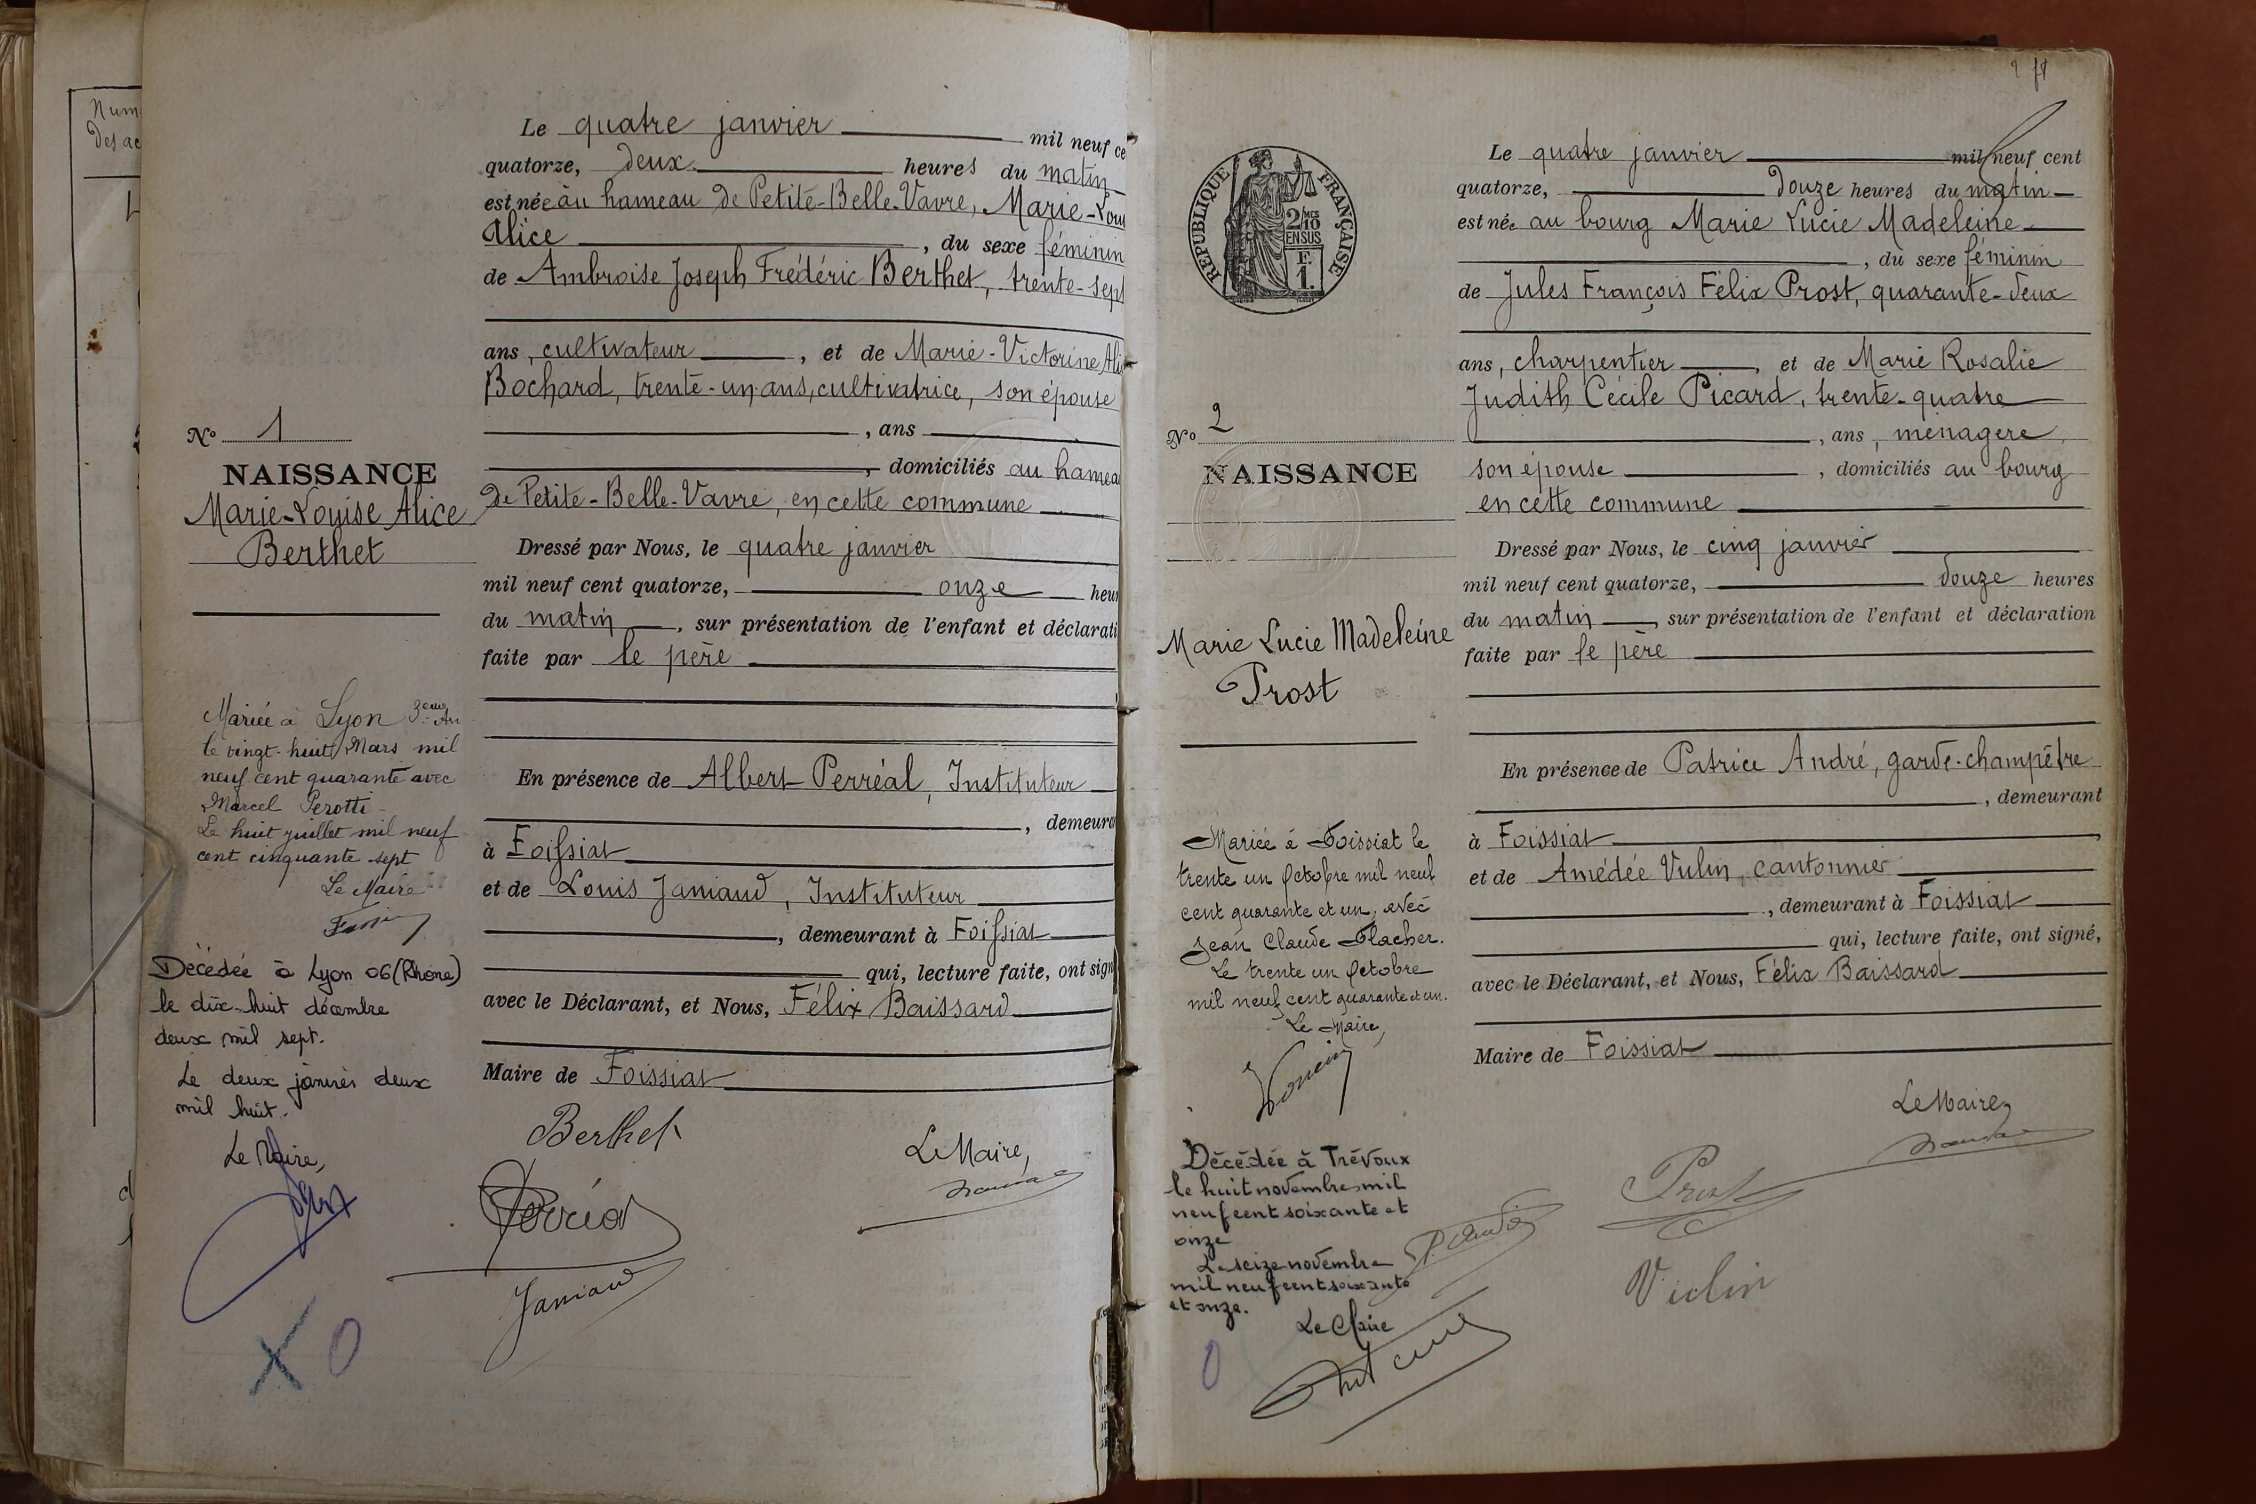 Num
des ac
Le quatre janvier mil neuf ce
quatorze, deux heures du matin
est née au hameau de Petite-Belle-Vavre, Marie-Lou
Alice, du sexe féminin
de Ambroise Joseph Frédéric Berthet, trente-sept
ans, cultivateur, et de Marie-Victorine Ali
Bochard, trente-un ans, cultivatrice, son épouse
, ans
, domiciliés au hamea
de Petite-Belle-Vavre, en cette commune
Dressé par Nous, le quatre janvier
mil neuf cent quatorze, onze heur
du matin, sur présentation de l'enfant et déclarati
faite par le père
En présence de Albert Perréal, Instituteur
, demeura
à Foissiat
et de Louis Janiaud, Instituteur
, demeurant à Foissiat
qui, lecture faite, ont sign
avec le Déclarant, et Nous, Félix Baissard
Maire de Foissiat
Berthet
Le Maire,
Perréal
Janiaud
No 1
NAISSANCE
Marie-Louise Alice
Berthet
Mariée à Lyon 3eme Arr
le vingt-huit Mars mil
neuf cent quarante avec
Marcel Perotti
Le huit juillet mil neuf
cent cinquante-sept
Le Maire
Décédée à Lyon 06 (Rhône)
le dix-huit décembre
deux mil sept.
Le deux janvier deux
mil huit.
Le Maire,
X 0
2
RÉPUBLIQUE FRANÇAISE
2/10 MES
EN SUS
F.
1.
Le quatre janvier mil neuf cent
quatorze, douze heures du matin
est née au bourg Marie Lucie Madeleine
, du sexe féminin
de Jules François Félix Prost, quarante-deux
ans, charpentier, et de Marie Rosalie
Judith Cécile Picard, trente-quatre
, ans, ménagère,
son épouse, domiciliés au bourg
en cette commune
Dressé par Nous, le cinq janvier
mil neuf cent quatorze, douze heures
du matin, sur présentation de l'enfant et déclaration
faite par le père
En présence de Patrice André, garde-champêtre
, demeurant
à Foissiat
et de Amédée Vulin, cantonnier
, demeurant à Foissiat
qui, lecture faite, ont signé,
avec le Déclarant, et Nous, Félix Baissard
Maire de Foissiat
Le Maire,
Prost
P. André
Vulin
No 2
NAISSANCE
Marie Lucie Madeleine
Prost
Mariée à Foissiat le
trente un Octobre mil neuf
cent quarante et un, avec
Jean Claude Flacher.
Le trente un Octobre
mil neuf cent quarante et un.
Le Maire,
Décédée à Trévoux
le huit novembre mil
neuf cent soixante et
onze
Le seize novembre
mil neuf cent soixante
et onze.
Le Maire
0